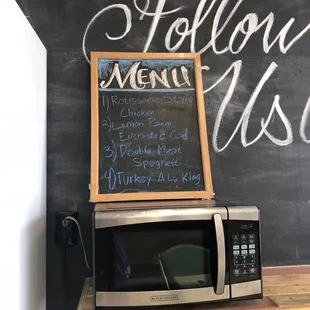 Follow
Us
MENU
1) Rotisserie Style
Chicken
2) Lemon Parm
Encrusted Cod
3) Double Meat
Spaghetti
4) Turkey A La King
BLACK+DECKER